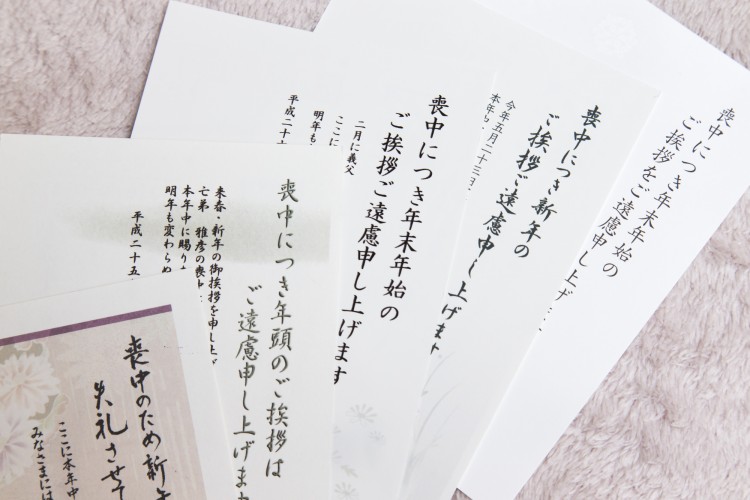 喪中につき年末年始の
ご挨拶をご遠慮申し上げ
喪中につき新年の
ご挨拶ご遠慮申し上げます
今年五月二十三日
本年も
喪中につき年末年始の
ご挨拶ご遠慮申し上げます
二月に義父
ここに
明年も
平成二十
喪中につき年頭のご挨拶は
ご遠慮申し上げま
来春・新年の御挨拶を申し上げ
亡弟 雅彦の喪中に
本年中に賜り
明年も変わらぬ
平成二十五
喪中のため新年
失礼させて
ここに本年中
みなさまには